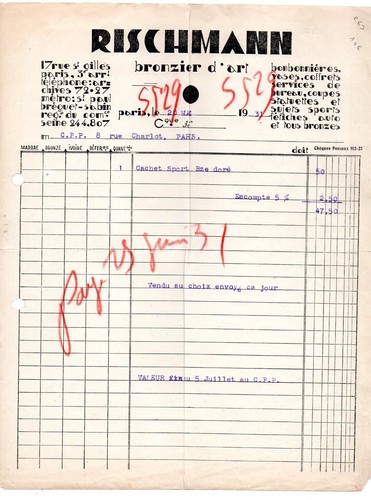 RISCHMANN
17 rue st gilles
paris, 3e arrt
téléphone: ar-
chives 72-27
métro: st paul
bréguet-sabin
reg. du com-
seine 244.807
bronzier d'art
5529
5529
paris, le 1931
bonbonnières,
vases, coffrets
services de
bureau, coupes
statuettes et
sujets sports
fétiches auto
et tous bronzes
M C.P.P. 8 rue Charlot, PARIS. doit
Chèques Postaux
MARBRE BRONZE IVOIRE RÉFÉR QUANT
1 Cachet Sport Bze doré 50
Escompte 5 % 2,50
47,50
payé 25 juin 31
Vendu au choix envoyé ce jour
VALEUR au 5 Juillet au C.P.P.